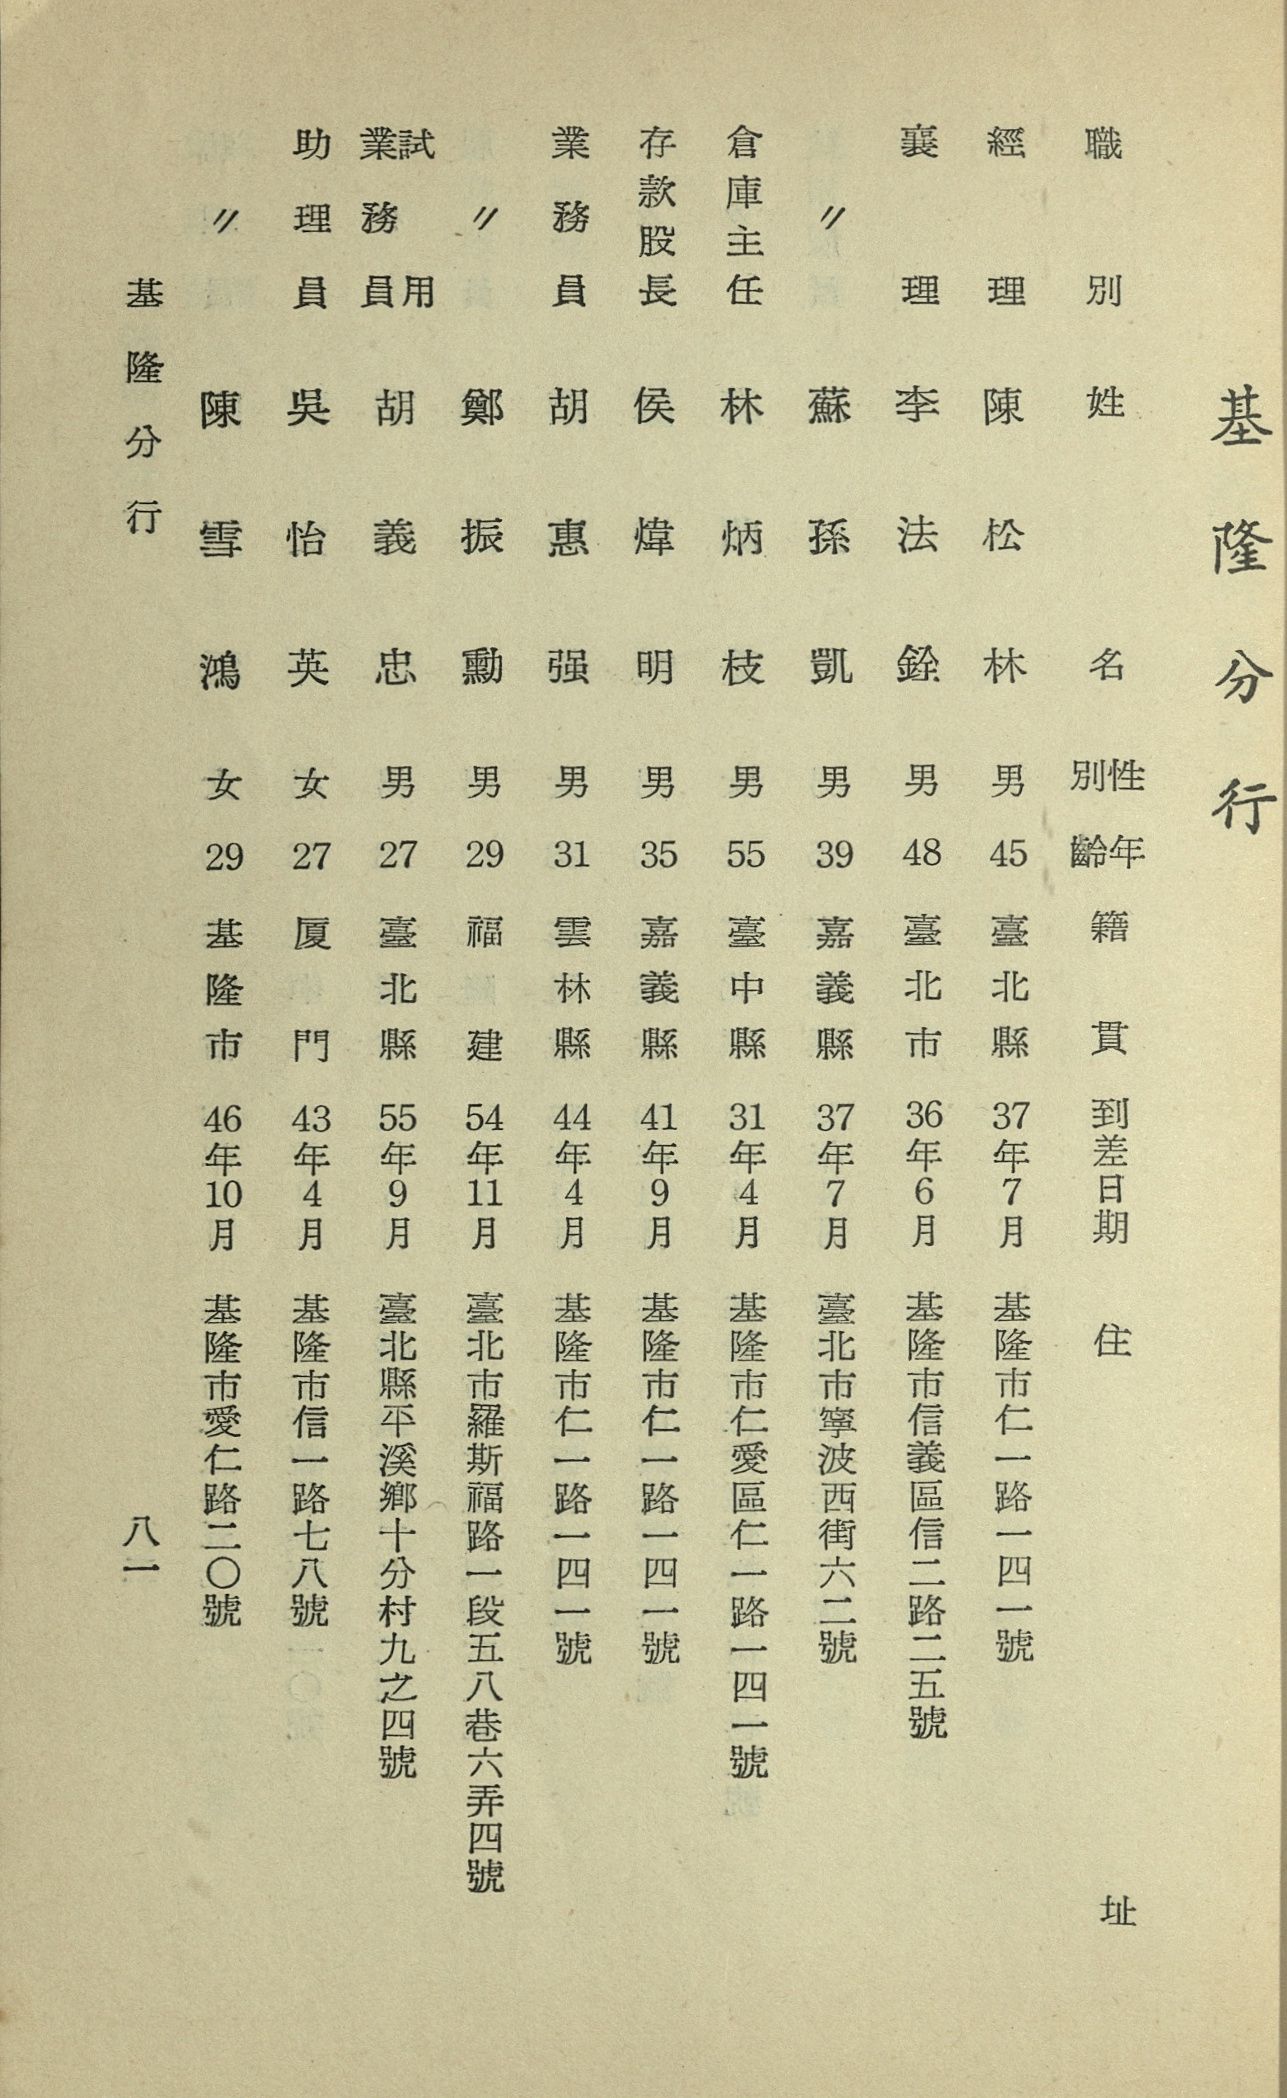 基隆分行
職別 姓名 性別 年齡 籍貫 到差日期 住址
經理 陳松林 男 45 臺北縣 37年7月 基隆市仁一路一四一號
襄理 李法銓 男 48 臺北市 36年6月 基隆市信義區信二路二五號
〃 蘇孫凱 男 39 嘉義縣 37年7月 臺北市寧波西街六二號
倉庫主任 林炳枝 男 55 臺中縣 31年4月 基隆市仁愛區仁一路一四一號
存款股長 侯煒明 男 35 嘉義縣 41年9月 基隆市仁一路一四一號
業務員 胡惠强 男 31 雲林縣 44年4月 基隆市仁一路一四一號
〃 鄭振勳 男 29 福建 54年11月 臺北市羅斯福路一段五八巷六弄四號
試用業務員 胡義忠 男 27 臺北縣 55年9月 臺北縣平溪鄉十分村九之四號
助理員 吳怡英 女 27 厦門 43年4月 基隆市信一路七八號
〃 陳雪鴻 女 29 基隆市 46年10月 基隆市愛仁路二〇號
基隆分行 八一